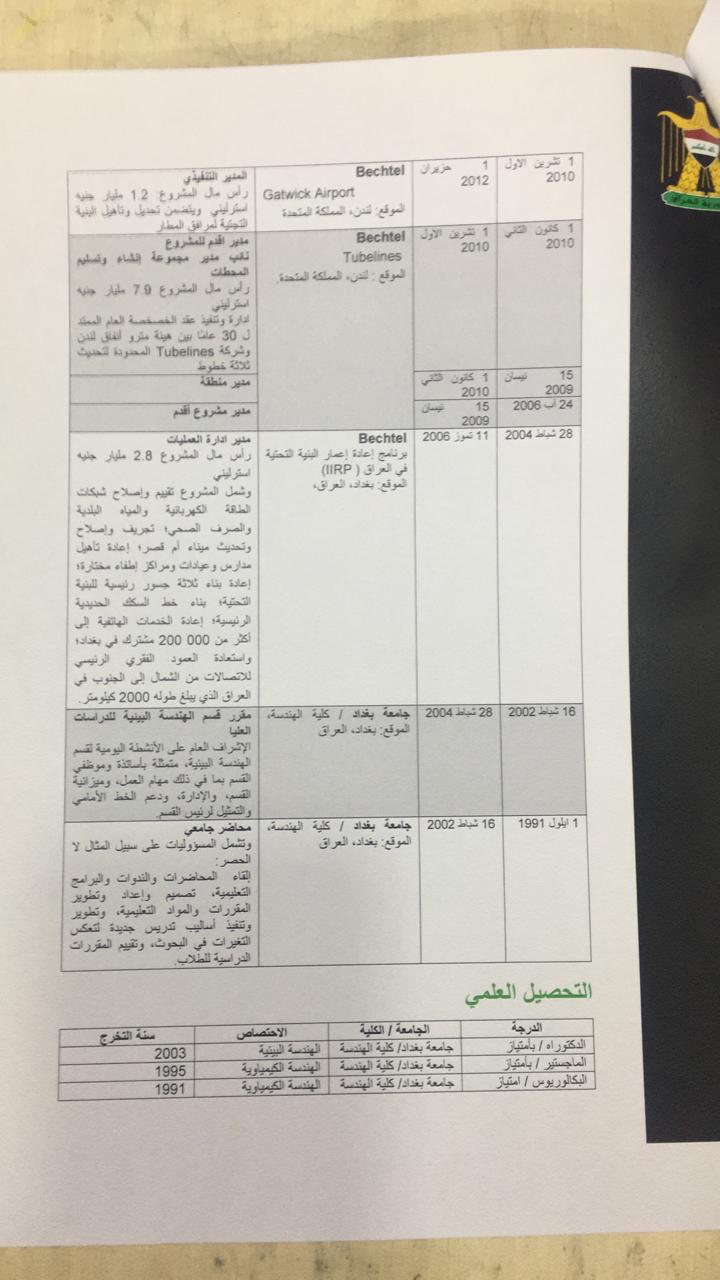 1 تشرين الاول
2010
1 حزيران
2012
Bechtel
Gatwick Airport
الموقع: لندن، المملكة المتحدة
المدير التنفيذي
رأس مال المشروع: 1.2 مليار جنيه
استرليني ويتضمن تحديل وتأهيل البنية
التحتية لمرافق المطار
1 كانون الثاني
2010
1 تشرين الاول
2010
Bechtel
Tubelines
الموقع : لندن، المملكة المتحدة.
مدير اقدم للمشروع
نائب مدير مجموعة إنشاء وتسليم
المحطات
رأس مال المشروع 7.9 مليار جنيه
استرليني
ادارة وتنفيذ عقد الخصخصة العام الممتد
ل 30 عاما بين هيئة مترو أنفاق لندن
وشركة Tubelines المحدودة لتحديث
ثلاثة خطوط
15 نيسان
2009
1 كانون الثاني
2010
مدير منطقة
24 آب 2006
15 نيسان
2009
مدير مشروع أقدم
28 شباط 2004
11 تموز 2006
Bechtel
برنامج إعادة إعمار البنية التحتية
في العراق ( IIRP)
الموقع: بغداد، العراق،
مدير ادارة العمليات
رأس مال المشروع 2.8 مليار جنيه
استرليني
وشمل المشروع تقييم وإصلاح شبكات
الطاقة الكهربائية والمياه البلدية
والصرف الصحي؛ تجريف وإصلاح
وتحديث ميناء أم قصر؛ إعادة تأهيل
مدارس وعيادات ومراكز إطفاء مختارة؛
إعادة بناء ثلاثة جسور رئيسية للبنية
التحتية؛ بناء خط السكك الحديدية
الرئيسية؛ إعادة الخدمات الهاتفية إلى
أكثر من 000 200 مشترك في بغداد؛
واستعادة العمود الفقري الرئيسي
للاتصالات من الشمال إلى الجنوب في
العراق الذي يبلغ طوله 2000 كيلومتر.
16 شباط 2002
28 شباط 2004
جامعة بغداد / كلية الهندسة،
الموقع: بغداد، العراق
مقرر قسم الهندسة البيئية للدراسات
العليا
الإشراف العام على الأنشطة اليومية لقسم
الهندسة البيئية، متمثلة بأساتذة وموظفي
القسم بما في ذلك مهام العمل، وميزانية
القسم، والإدارة، ودعم الخط الأمامي
والتمثيل لرئيس القسم.
1 ايلول 1991
16 شباط 2002
جامعة بغداد / كلية الهندسة،
الموقع: بغداد، العراق
محاضر جامعي
وتشمل المسؤوليات على سبيل المثال لا
الحصر:
إلقاء المحاضرات والندوات والبرامج
التعليمية، تصميم وإعداد وتطوير
المقررات والمواد التعليمية، وتطوير
وتنفيذ أساليب تدريس جديدة لتعكس
التغيرات في البحوث، وتقييم المقررات
الدراسية للطلاب.
التحصيل العلمي
الدرجة
الجامعة / الكلية
الاختصاص
سنة التخرج
الدكتوراه / بأمتياز
جامعة بغداد/ كلية الهندسة
الهندسة البيئية
2003
الماجستير / بأمتياز
جامعة بغداد/ كلية الهندسة
الهندسة الكيمياوية
1995
البكالوريوس / امتياز
جامعة بغداد/ كلية الهندسة
الهندسة الكيمياوية
1991